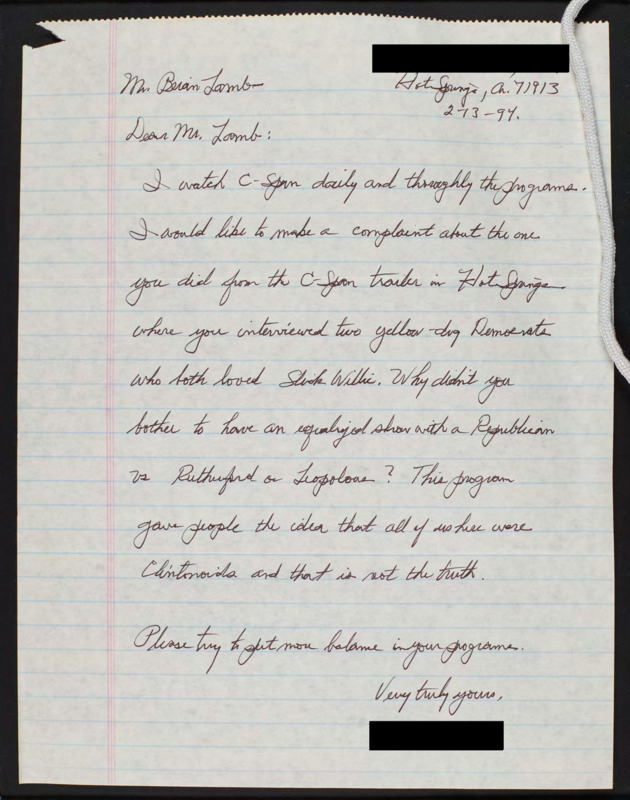 Mr. Brian Lamb
Hot Springs, Ar. 71913
2-13-94.
Dear Mr. Lamb:
I watch C-Span daily and throughly the programs.
I would like to make a complaint about the one
you did from the C-Span trailer in Hot Springs
where you interviewed two yellow-dog Democrats
who both loved Slick Willie. Why didn't you
bother to have an equalized show with a Republican
vs Rutherford or Leopolous? This program
gave people the idea that all of us here were
Clintonoids and that is not the truth.
Please try to get more balance in your programs.
Very truly yours,